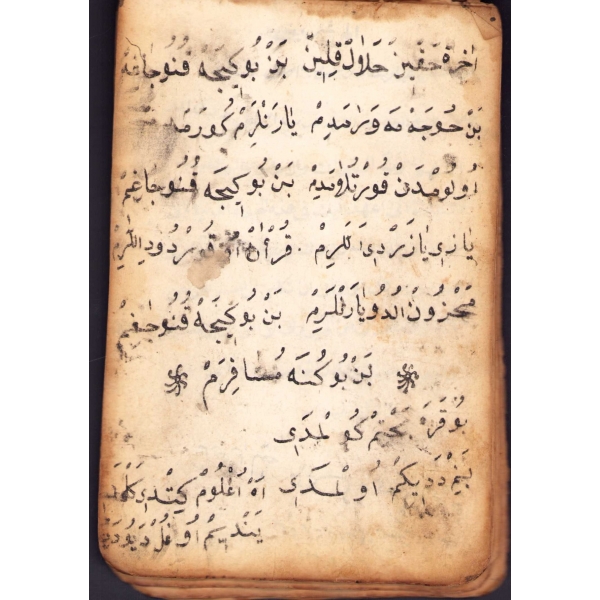 اٰخِرَة حَقِّينْ حَلَالْ قِلِينْ بَنْ بُو كِيجَه قُنُوجَاغِمْ
بَنْ خُوجَه مَه وَرَامَدِمْ يَارَنْلَرِمْ كُورَمَدِ
اُولُومْدَنْ قُورْتُلَامَدِمْ بَنْ بُو كِيجَه قُنُوجَاغِمْ
يَازِى يَازَرْدِى اَللَرِمْ قُرْاٰنْ اُوقُورْدُو دِللَرِمْ
مَحْزُونْ اُلْدُو يَارَنْلَرِمْ بَنْ بُو كِيجَه قُنُوجَغِمْ
بَنْ بُو كُنَه مُسَافِرَمْ
بُو قَرَه بَخْتِمْ كُولْمَدِى
بَنِمْ دَدِيكِمْ اُولْمَدِى اَهْ اُغْلُومْ كِتْدِى كَلْمَدِ
يَنْدِيمْ اُوغُلْ دِيُو دِيُو